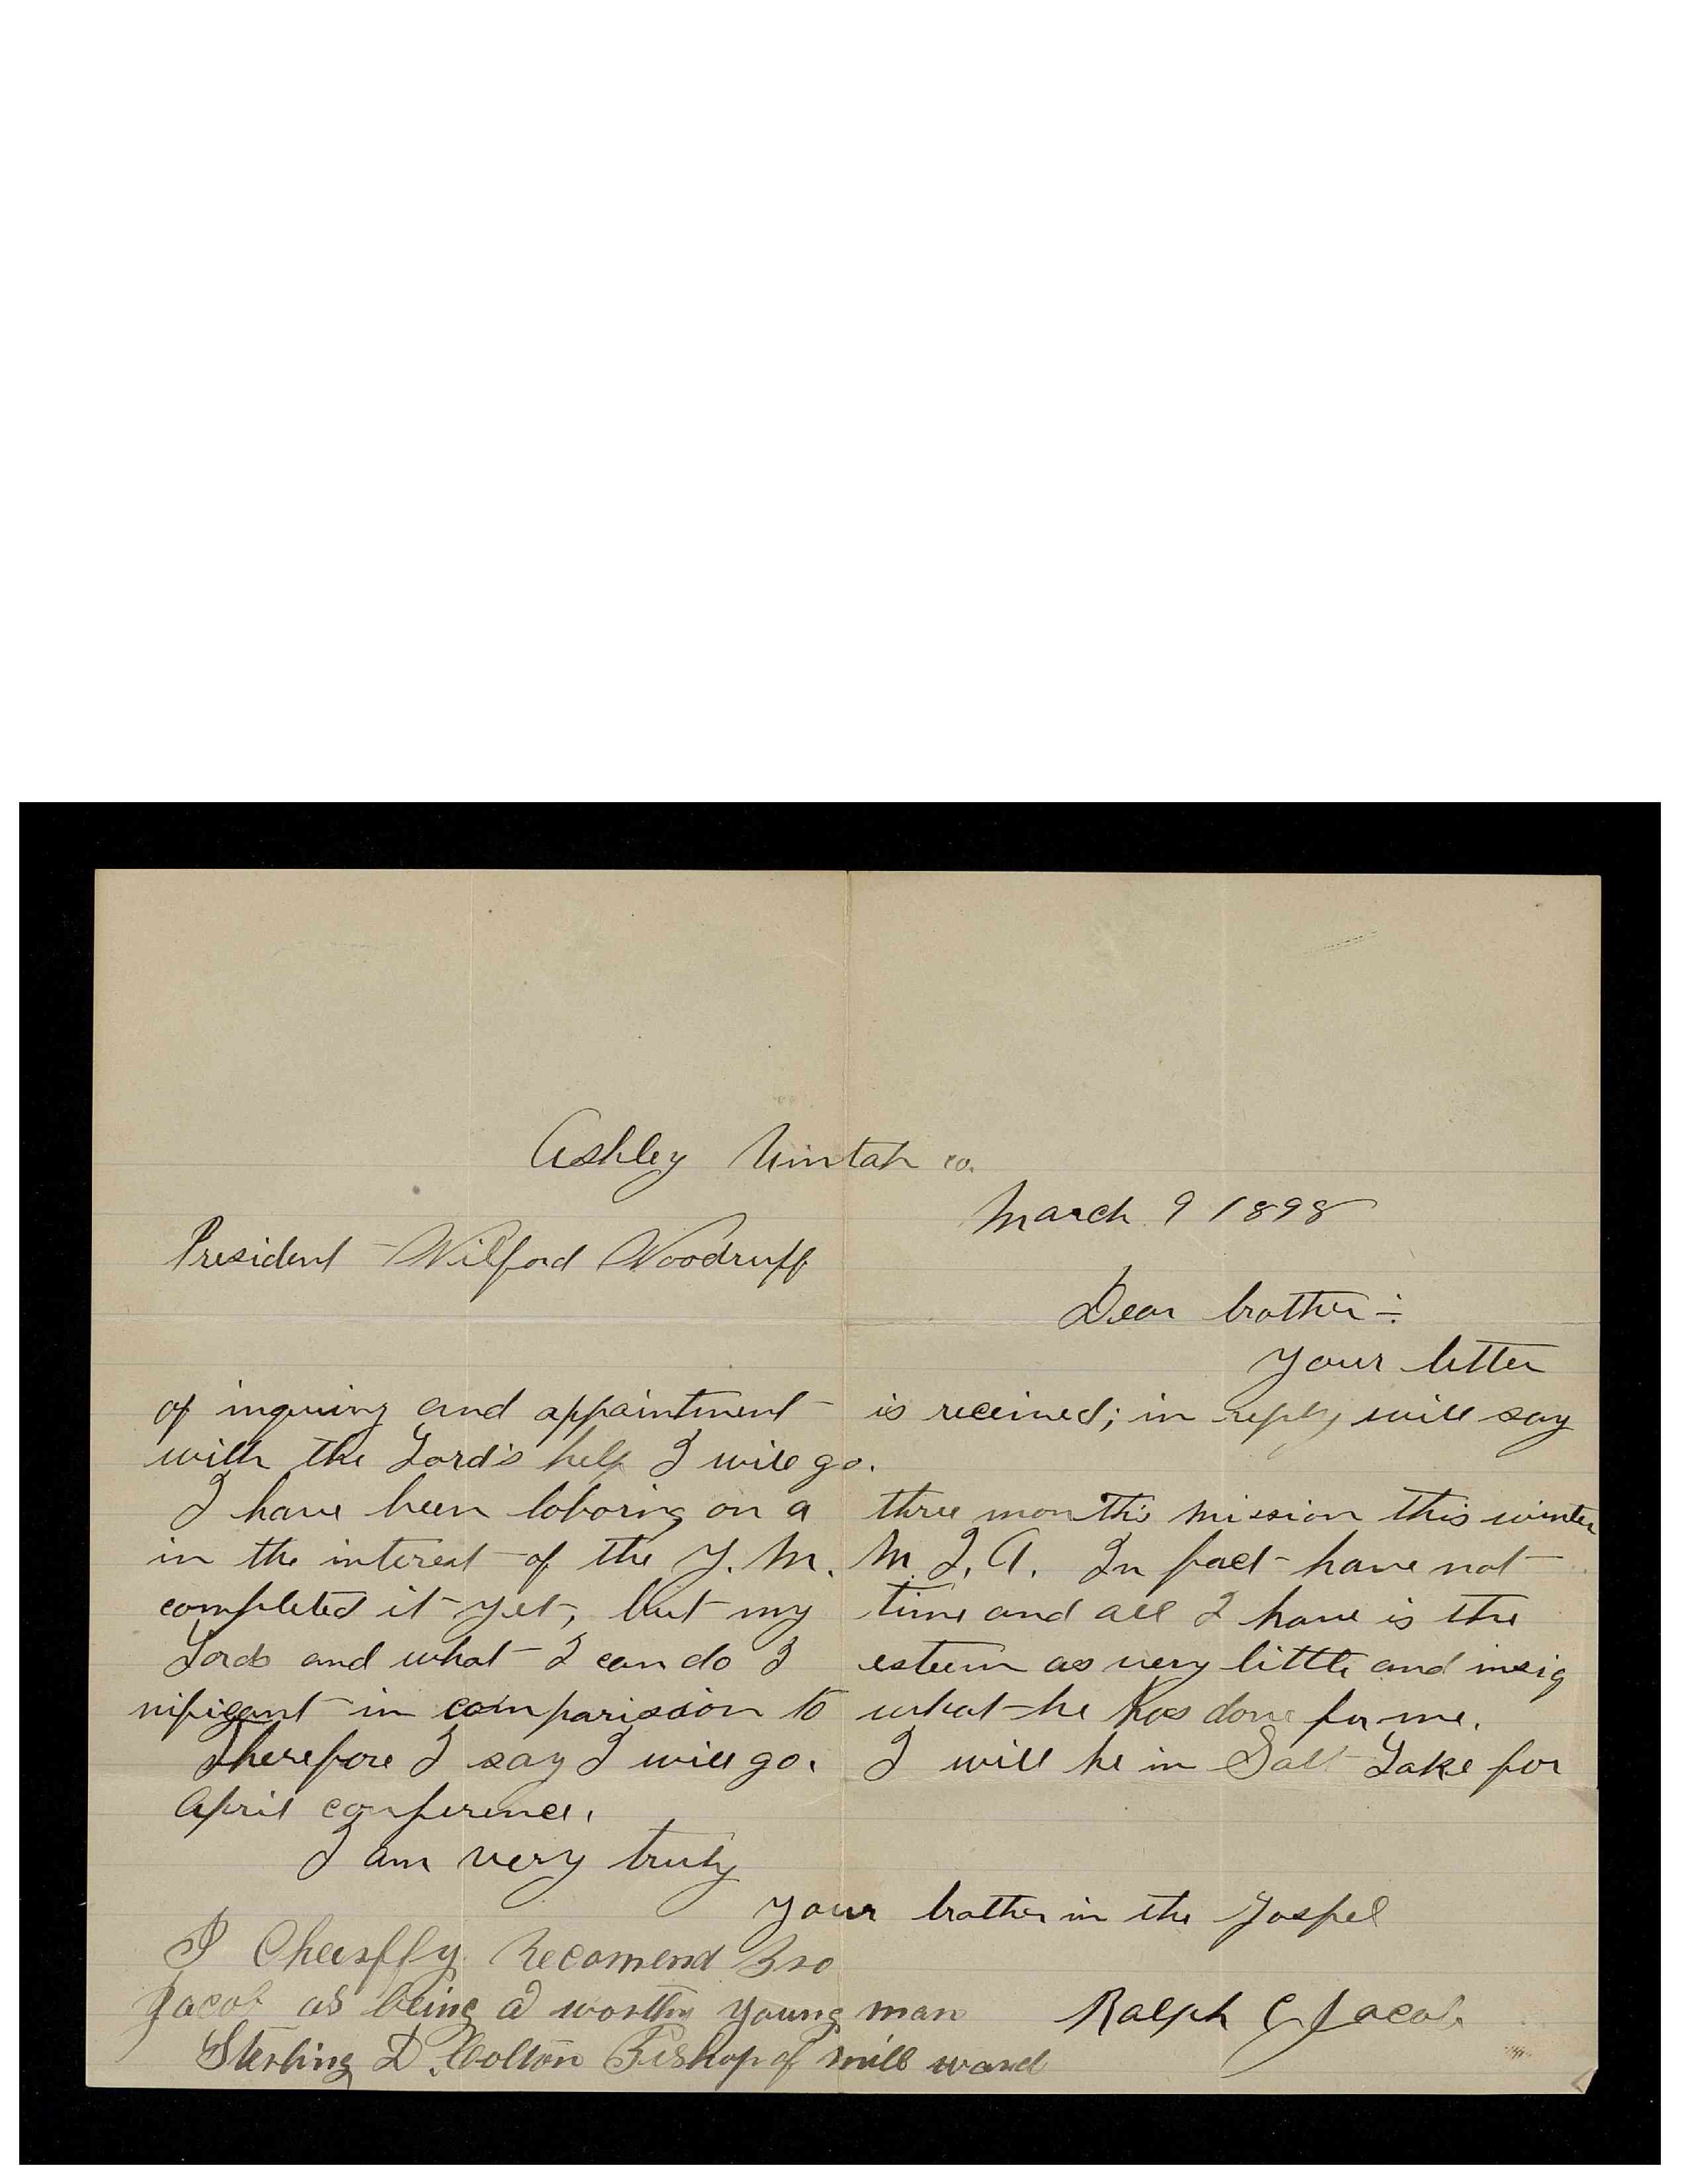 Ashley Uintah co.
March 9 1898
President Wilford Woodruff
Dear brother :-
Your letter
of inquiry and appointment is received; in reply, will say
with the Lord's help I will go.
I have been laboring on a three months mission this winter
in the interest of the Y. M. M. I. A. In fact have not
completed it yet, but my time and all I have is the
Lords and what I can do I esteem as very little and insig
nificant in comparission to what he has done for me.
Therefore I say I will go. I will be in Salt Lake for
April conference.
I am very truly
your brother in the Gospel
Ralph G Jacob.
I Cheerffly Recomend Bro
Jacob as being a worthy young man
Sterling D. Colton Bishop of mill ward